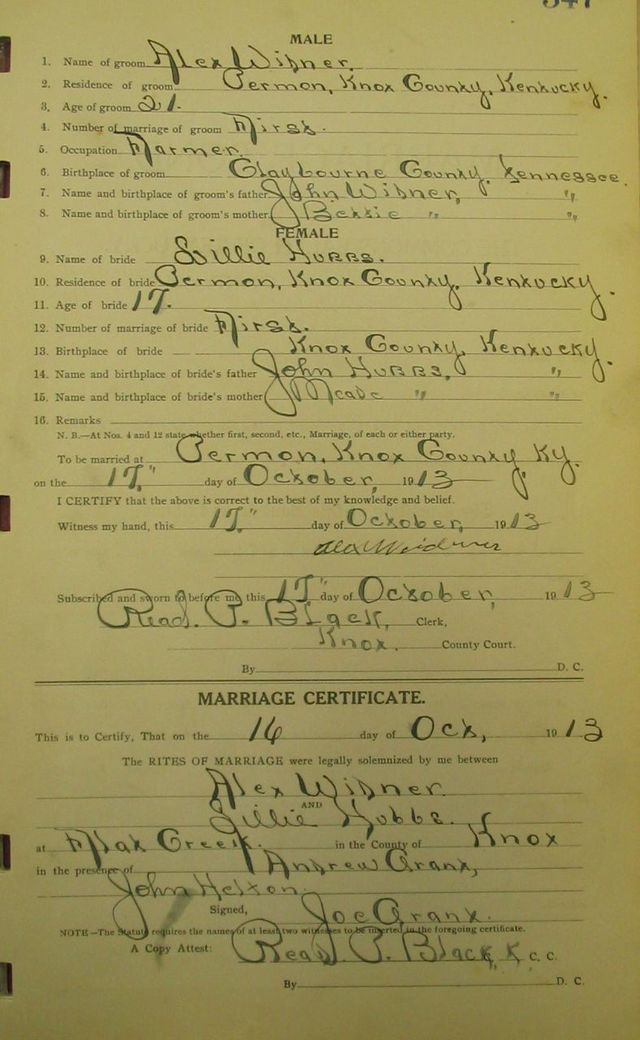 347
MALE
1. Name of groom Alex Widner.
2. Residence of groom Permon, Knox County, Kentucky.
3. Age of groom 21.
4. Number of marriage of groom First.
5. Occupation Farmer.
6. Birthplace of groom Claybourne County, Tennessee.
7. Name and birthplace of groom's father John Widner, "
8. Name and birthplace of groom's mother Bettie " "
FEMALE
9. Name of bride Lillie Hubbs.
10. Residence of bride Permon, Knox County, Kentucky.
11. Age of bride 17.
12. Number of marriage of bride First.
13. Birthplace of bride Knox County, Kentucky.
14. Name and birthplace of bride's father John Hubbs, "
15. Name and birthplace of bride's mother " "
16. Remarks
N. B.—At Nos. 4 and 12 state whether first, second, etc., Marriage, of each or either party.
To be married at Permon, Knox County, Ky.
on the 17" day of October, 1913
I CERTIFY that the above is correct to the best of my knowledge and belief.
Witness my hand, this 17" day of October, 1913
Alex Weidner
Subscribed and sworn to before me this 17" day of October, 1913
Read. P. Black, Clerk,
Knox. County Court.
By D. C.
MARRIAGE CERTIFICATE.
This is to Certify, That on the 16 day of Oct, 1913
The RITES OF MARRIAGE were legally solemnized by me between
Alex Widner
AND
Lillie Hubbs.
at Flat Creek. in the County of Knox
in the presence of Andrew Grant,
John
Signed, Joe Grant.
NOTE—The Statute requires the names of at least two witnesses to be inserted in the foregoing certificate.
A Copy Attest: Read P. Black, K C. C.
By D. C.